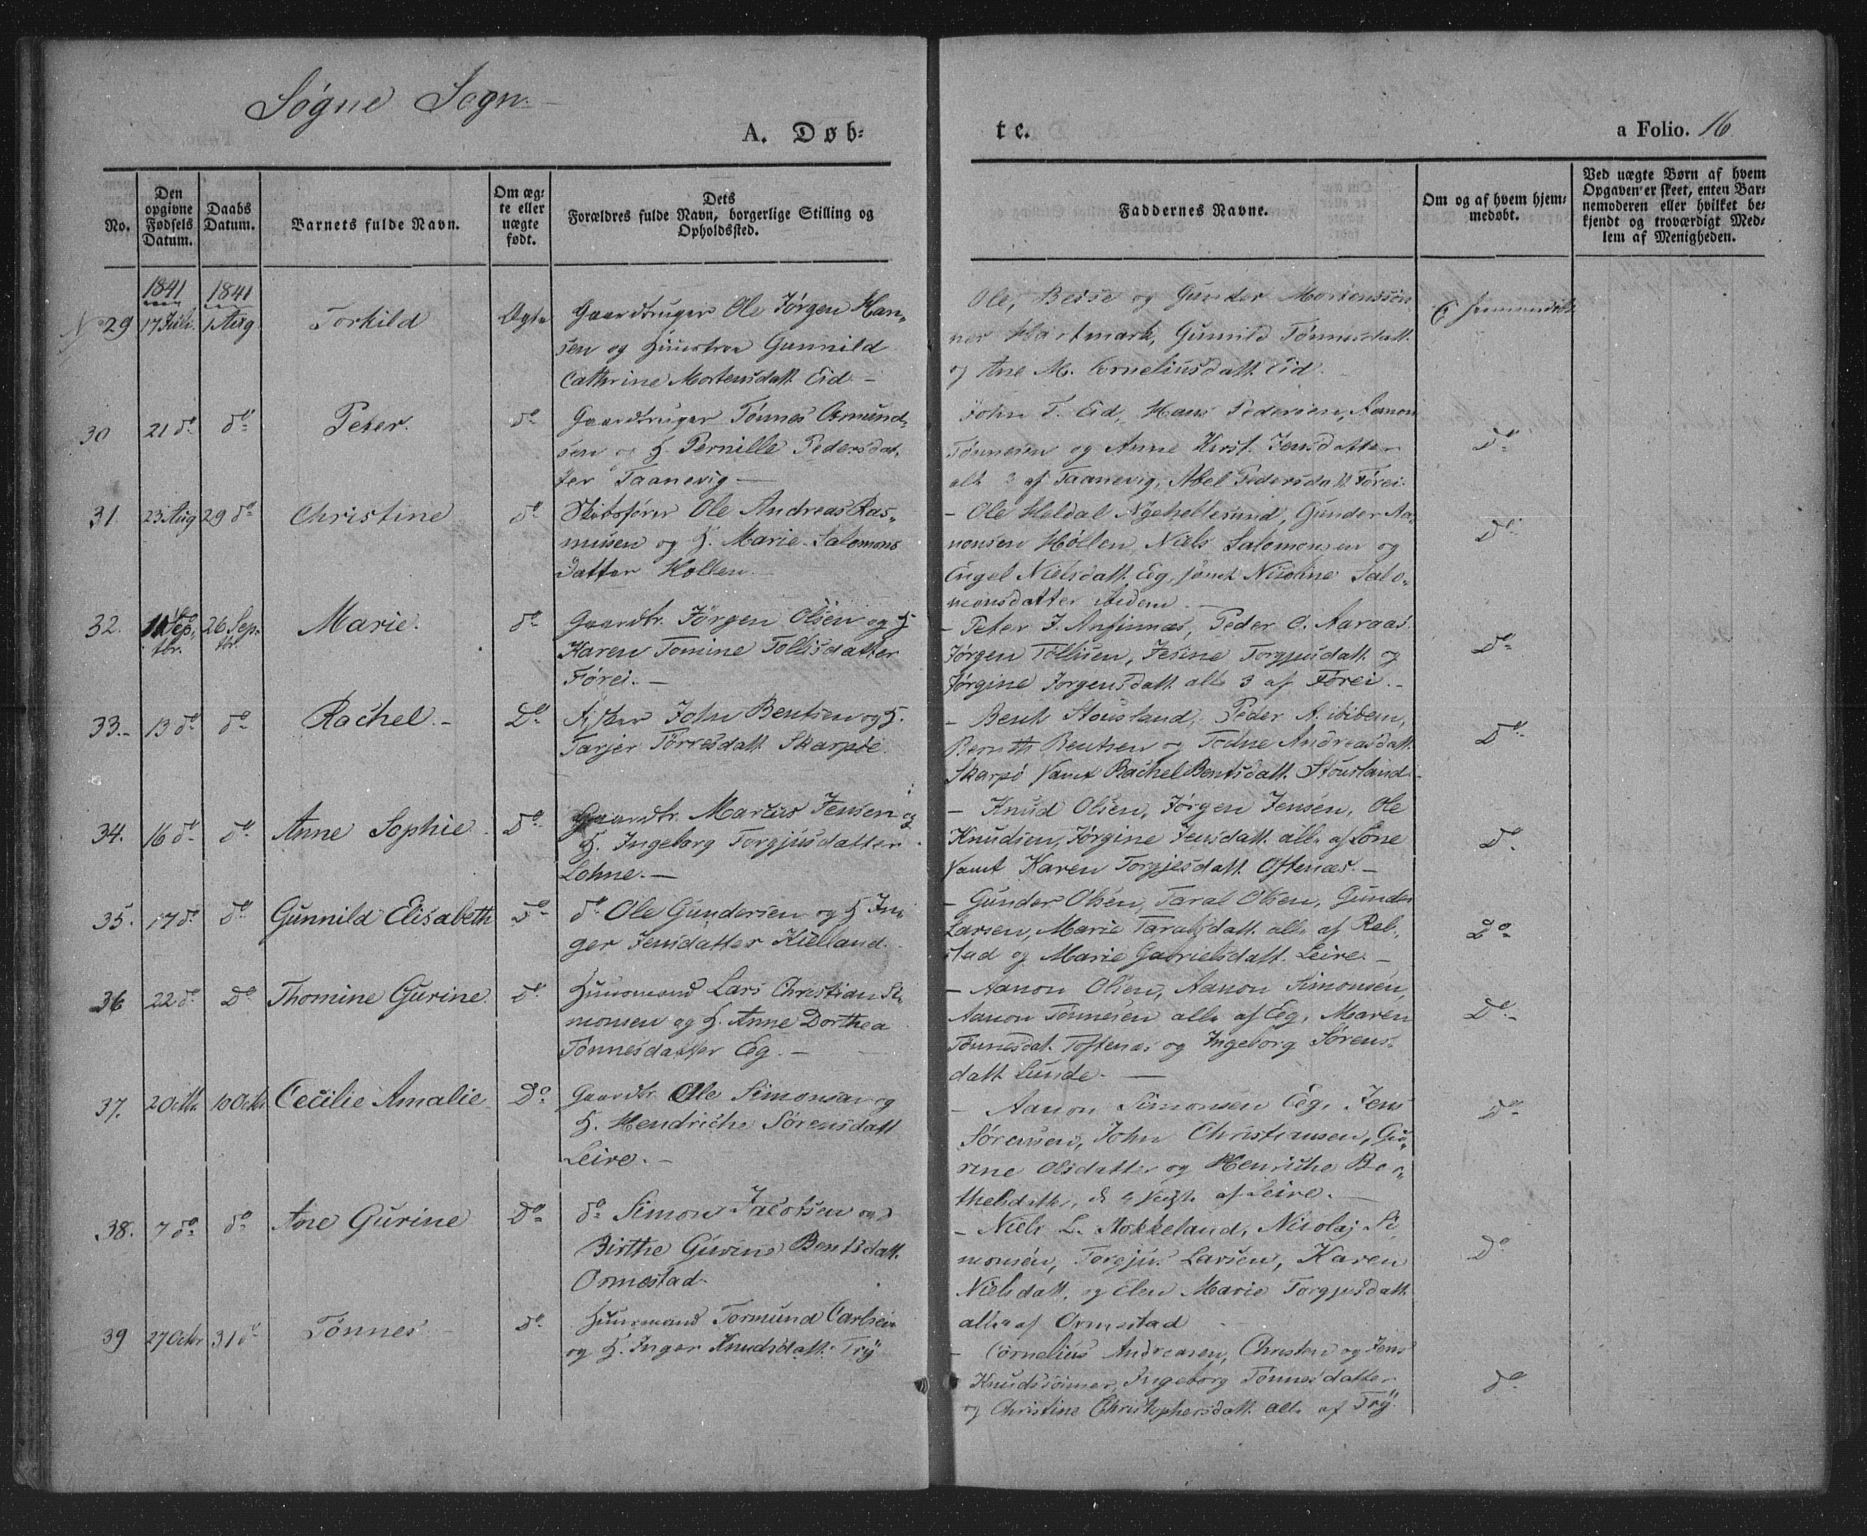 Søgne Sogn.
A. Døb-
te.
a Folio. 16
No.
Den opgivne Fødsels Datum.
Daabs Datum.
Barnets fulde Navn.
Om ægte eller uægte født.
Dets
Forældres fulde Navn, borgerlige Stilling og
Opholdssted.
Faddernes Navne.
Om og af hvem hjem-
medøbt.
Ved uægte Børn af hvem
Opgaven er skeet, enten Bar-
nemoderen eller hvilket be-
kjendt og troværdigt Med-
lem af Menigheden.
1841 1841
No 29 17 Juli 1 Aug Torkild Ægte Gaardbruger Ole Jørgen Han-
sen og Huustroe Gunnild
Cathrine Mortensdatt. Eid
Ole, Berse og Gunder Mortenssøn-
ner Hartmark, Gunnild Tønnesdatt.
og Ane M. Corneliusdatt. Eid.
Ei hjemmedøbt
30 21 do do Peter. do Gaardbruger Tønnes Osmund-
sen og H. Pernille Pedersdat-
ter Taanevig
John T. Eid, Hans Pedersen, Aanon
Tønnesen og Anne Kirst. Jensdatter
alle 3 af Taanevig, Abel Pedersdatt Førei.
Do
31. 23 Aug 29 do Christine do Skibsfører Ole Andreas Ras-
musen og H. Marie Salomons
datter Høllen.
Ole Heldal Nyehellesund, Gunder Aa-
nonsen Høllen, Niels Salomonsen og
Engel Nielsdatt. Eg, samt Nicoline Salo-
monsdatter ibidem.
Do
32. 11 Sep. tbr. 26 Sep. tbr. Marie. do Gaardbr. Jørgen Olsen og H
Karen Tomine Tollisdatter
Førei.
Peter J. Amfinnæs, Peder O. Aaraas
Jørgen Tollisen, Jesine Torgjusdatt og
Jørgine Jørgensdatt alle 3 af Førei.
Do
33. 13 do do Rachel. Do Fisker John Bentsen og H.
Tarjer Torresdatt. Skarpøe.
Bent Stousland, Peder A. ibidem,
Bernth Bentsen og Todne Andreasdatt.
Skarpø samt Rachel Bentsdatt. Stousland
Do
34. 16 do do Anne Sophie Do Gaardbr. Marcus Jensen og
H. Ingeborg Torgjusdatter
Lohne.
Knud Olsen, Jørgen Jensen, Ole
Knudsen, Jørgine Jensdatt. alle af Lone
samt Karen Torgjesdatt. Oftenæs.
Do
35. 17 do do Gunnild Elisabeth Do do Ole Gundersen og H In-
ger Jensdatter Kielland.
Gunder Olsen, Taral Olsen, Gunder
Larsen, Marie Taralsdatt. alle af Reb-
stad og Marie Gabrielsdatt. Leire.
Do
36 22 do Do Thomine Gurine. do Huusmand Lars Christian Si-
monsen og H. Anne Dorthea
Tønnesdatter Eeg.
Aanon Olsen, Aanon Simonsen,
Aanon Tønnesen alle af Eeg, Maren
Tønnesdat. Toftenæs og Ingeborg Sørens-
datt Lunde.
Do
37. 2 Octbr 10 Octbr Cecilie Amalie Do Gaardbr. Ole Simonsen og
H. Hendriche Sørensdatt
Leire.
Aanon Simonsen Eeg, Jens
Sørensen, John Christiansen, Gu-
rine Olsdatter og Henriche Ber-
thelsdatter, af Leire.
Do
38. 7 do do Ane Gurine Do do Simon Jacobsen og
Birthe Gurine Bentsdatt.
Ormestad.
Niels L. Stokkeland, Nicolaj Si-
monsen, Torgjus Larsen, Karen
Nielsdatt. og Elen Marie Torgjusdatt
alle af Ormestad
Do
39 27 Octbr 31 do Tønnes Do Huusmand Tormund Carlsen
og H. Inger Knudsdatt. Try
Cornelius Andreasen, Christen og Jens
Knudssønner, Ingeborg Tønnesdatter
og Christine Christophersdatt. alle af Try.
do